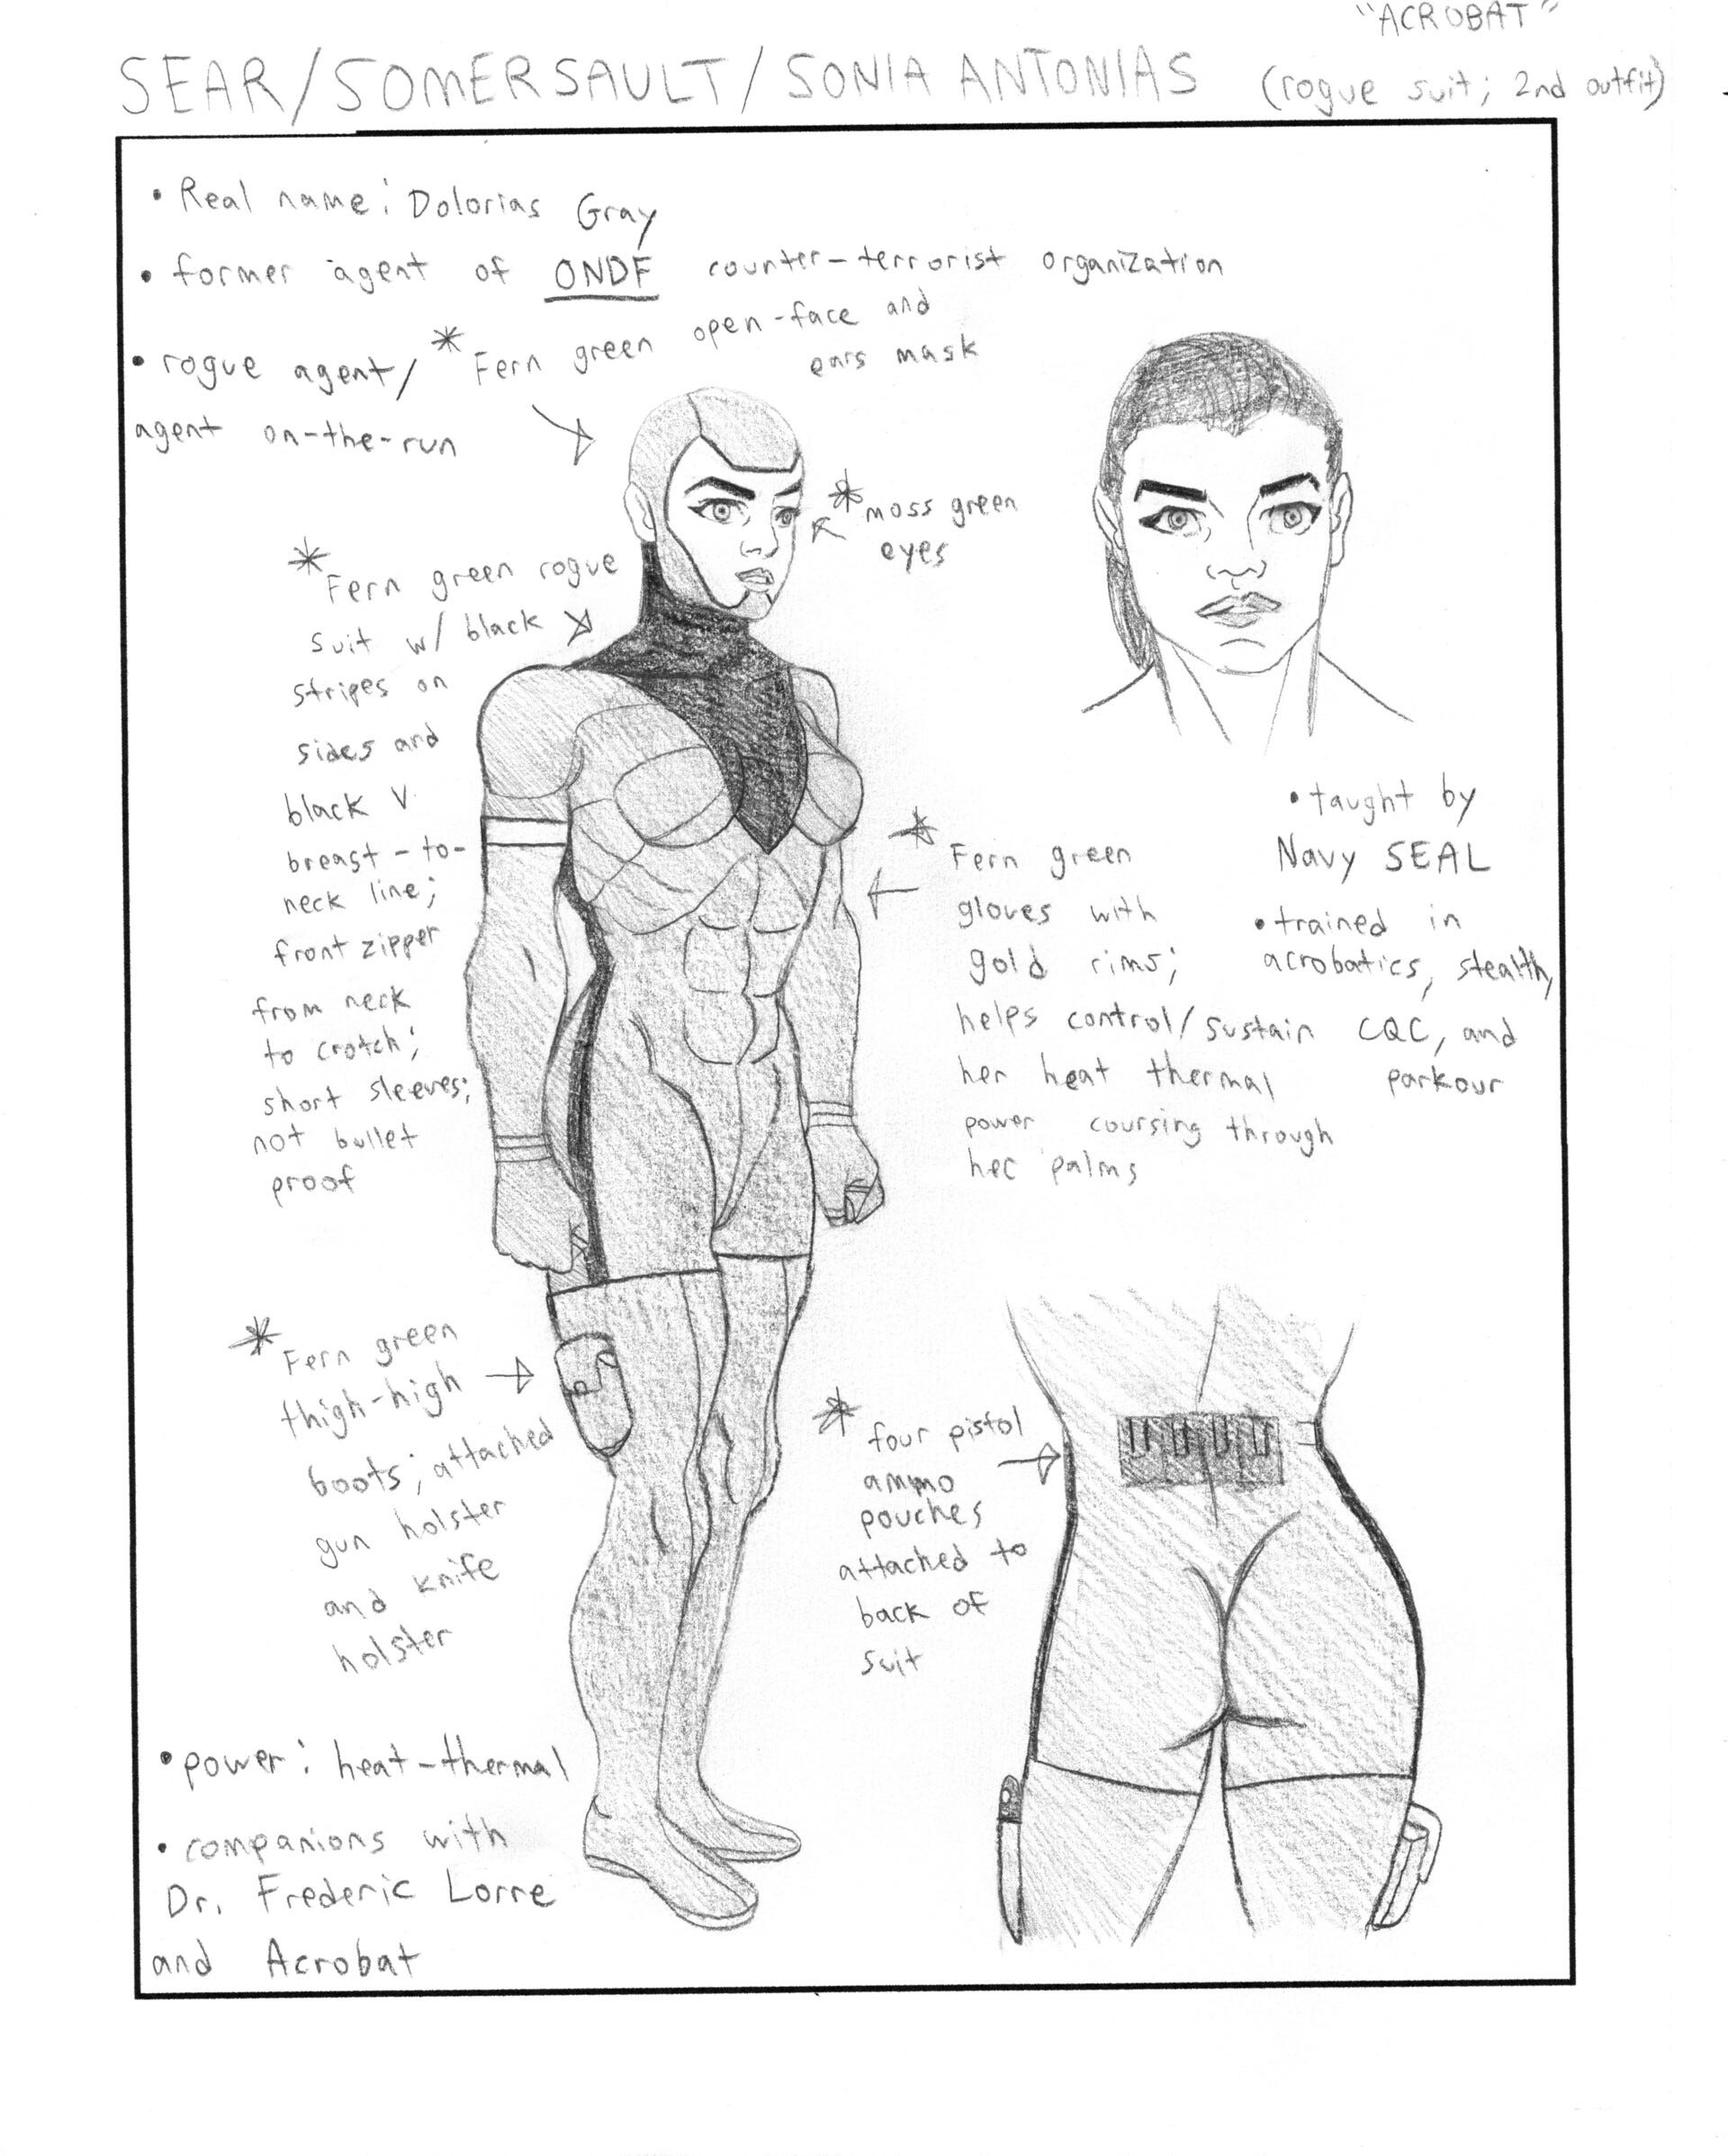 "ACROBAT"
SEAR/SOMERSAULT/SONIA ANTONIAS (rogue suit; 2nd outfit)
• Real name: Dolorias Gray
• former agent of ONDF counter-terrorist organization
• rogue agent/
agent on-the-run
* Fern green open-face and
ears mask
* moss green
eyes
* Fern green rogue
suit w/ black
stripes on
sides and
black V
breast-to-
neck line;
front zipper
from neck
to crotch;
short sleeves;
not bullet
proof
* Fern green
gloves with
gold rims;
helps control/sustain
her heat thermal
power coursing through
her palms
• taught by
Navy SEAL
• trained in
acrobatics, stealth,
CQC, and
parkour
* Fern green
thigh-high
boots; attached
gun holster
and knife
holster
* four pistol
ammo
pouches
attached to
back of
suit
• power: heat-thermal
• companions with
Dr. Frederic Lorre
and Acrobat